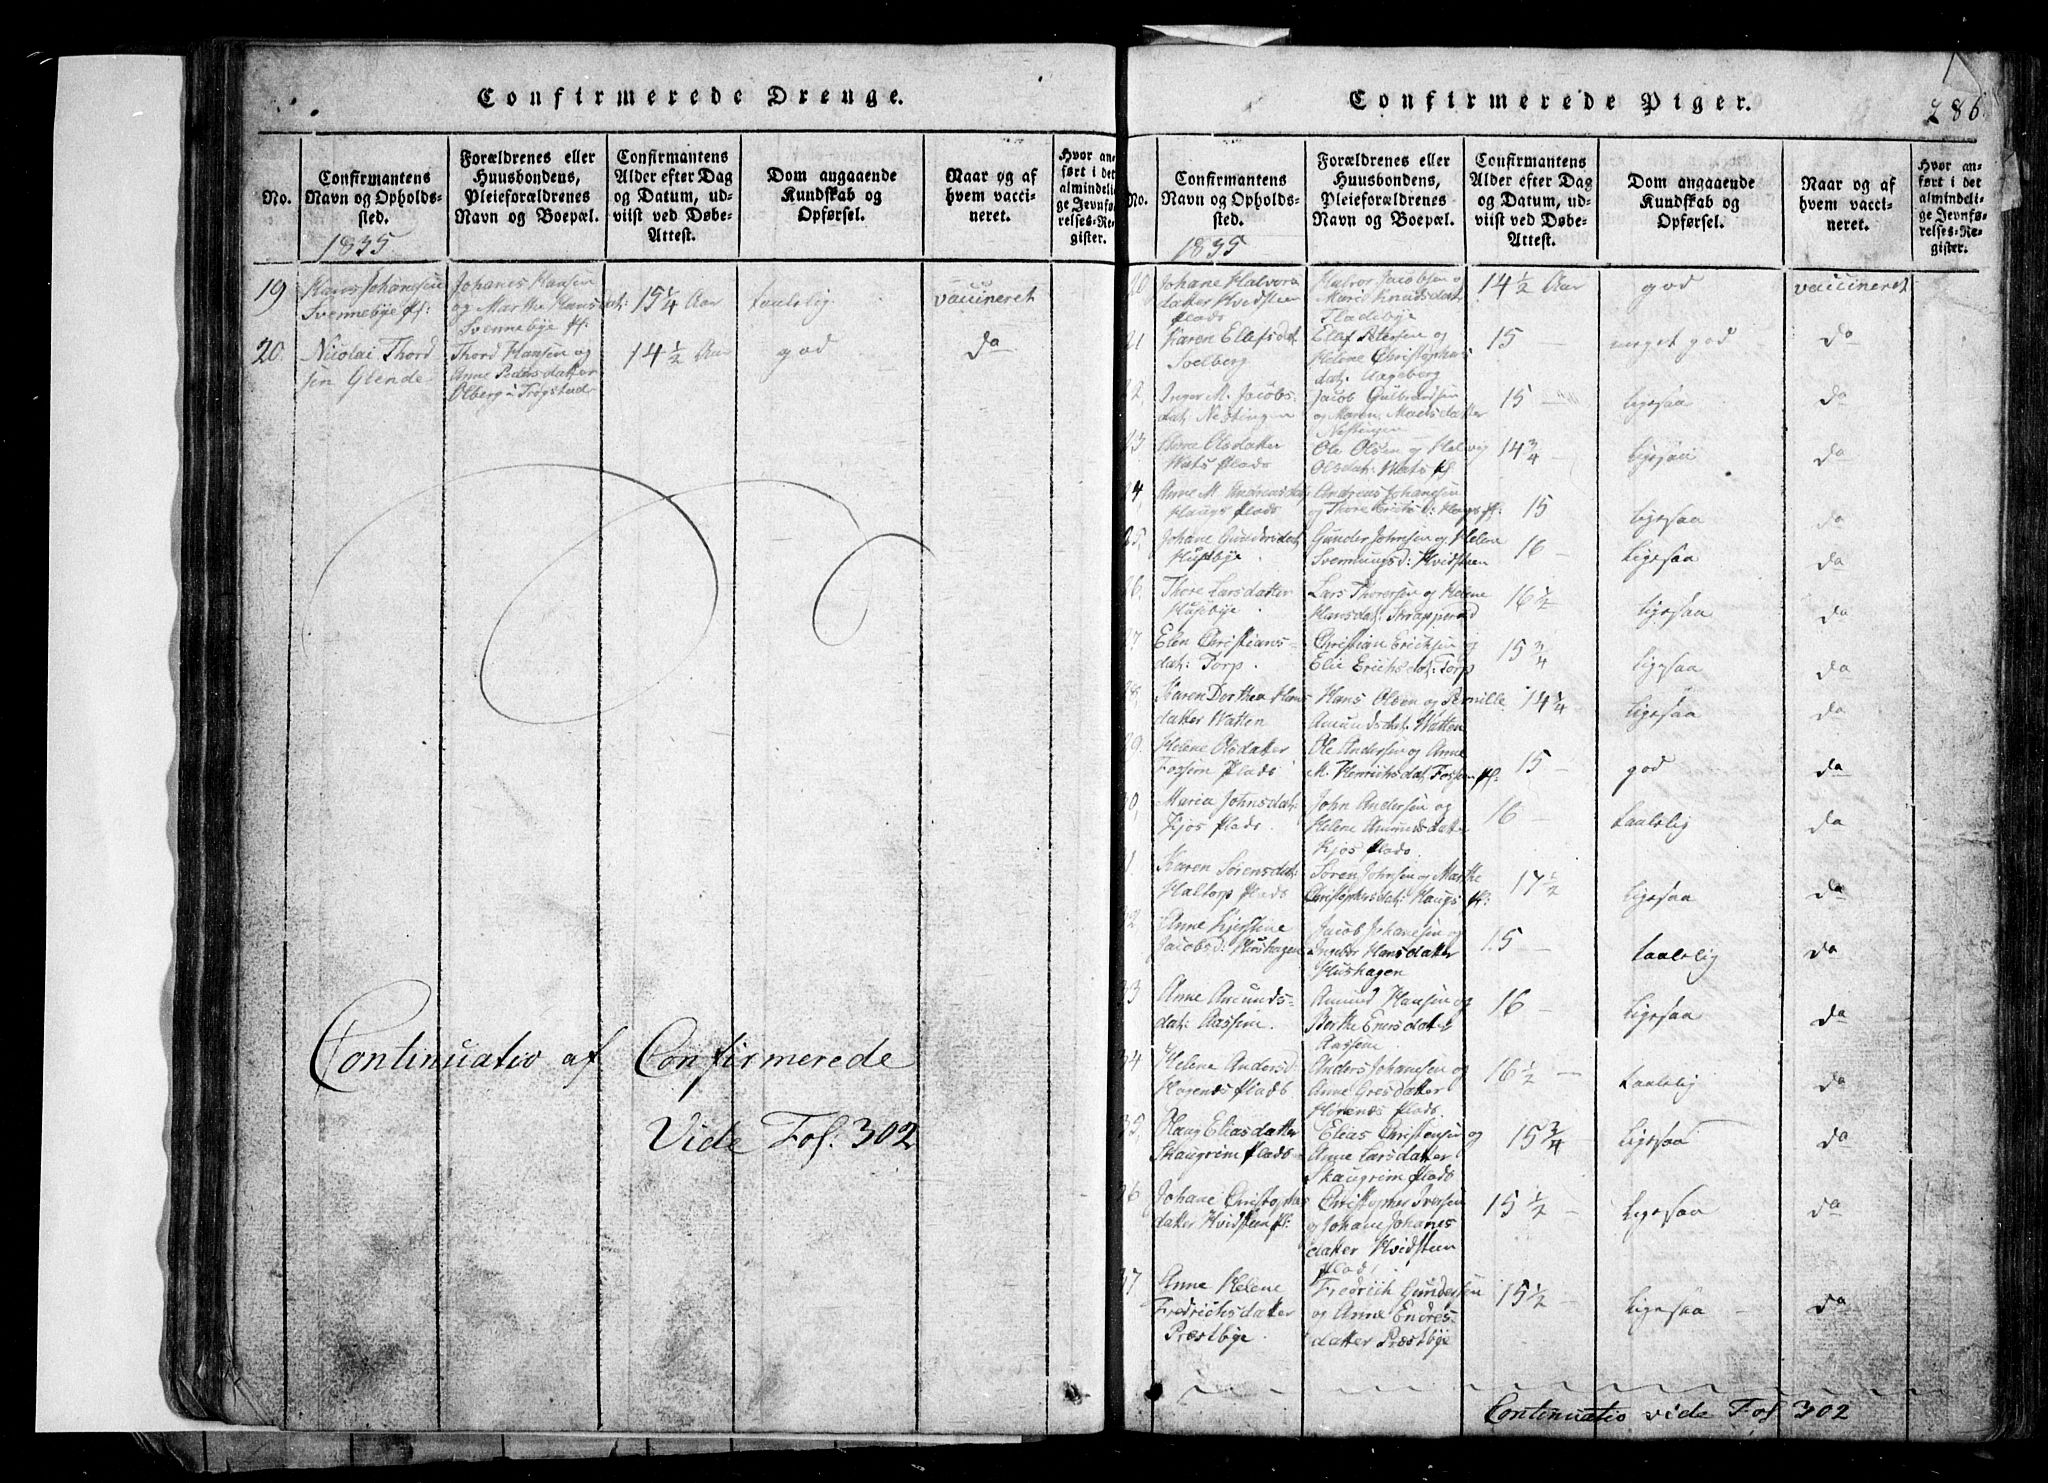 Confirmerede Drenge.
No.
Confirmantens
Navn og Opholds-
sted.
1835
Forældrenes eller
Huusbondens,
Pleieforældrenes
Navn og Boepæl.
Confirmantens
Alder efter Dag
og Datum, ud-
viist ved Døbe-
Attest.
Dom angaaende
Kundskab og
Opførsel.
Naar og af
hvem vacci-
neret.
Hvor an-
ført i det
almindeli-
ge Jevnfø-
relses-Re-
gister.
19 Hans Johansen
Svennebye pl:
Johanes Hansen
og Marthe Hansdat:
Svennebye pl:
15 1/4 Aar
taalelig
vaccineret
20. Nicolai Thord
sen Glende
Thord Hansen og
Anne Pedersdatter
Olberg i Trøgstad
14 1/2 Aar
god
do
Continuatio af Confirmerede
Vide Fol: 302
Confirmerede Piger.
286
No.
Confirmantens
Navn og Opholds-
sted.
1835
Forældrenes eller
Huusbondens,
Pleieforældrenes
Navn og Boepæl.
Confirmantens
Alder efter Dag
og Datum, ud-
viist ved Døbe-
Attest.
Dom angaaende
Kundskab og
Opførsel.
Naar og af
hvem vacci-
neret.
Hvor an-
ført i det
almindeli-
ge Jevnfø-
relses-Re-
gister.
20 Johane Halvors
datter Hvidsteen
plads
Halvor Jacobsen og
Marie Knudsdat:
Fladebye
14 1/2 Aar
god
vaccineret
21 Karen Elefsdat
Solberg
Elef Petersen og
Helene Christophers
dat: Aageberg
15 —
meget god
do
22, Inger M. Jacobs
dat: Nestingen
Jacob Gulbrandsen
og Maren Madsdatter
Nestingen
15 —
ligesaa
do
23 Thore Olsdatter
Wats plads
Ole Olsen og Helvig
Olsdat: Wats pl
14 3/4
ligesaa
do
24, Anne M. Andreasdat,
Haugs plads
Andreas Johansen
og Thore Erichs d: Haugs pl:
15
ligesaa
do
25, Johane Gundersdat,
Husebye
Gunder Johnsen og Helene
Svennungsd: Hvidsteen
16 —
ligesaa
do
26. Thore Larsdatter
Husebye
Lars Thoresen og Helene
Hansdat: Skrapperud
16 1/2
ligesaa
do
27 Elen Christians-
dat: Torp
Christian Erichsen og
Elie Erichsdat: Torp
15 3/4
ligesaa
do
28, Karen Dorthea Hans
datter Watten
Hans Olsen og Pernille
Amundsdat: Watten
14 3/4
ligesaa
do
29. Helene Olsdatter
Fossem plads
Ole Andersen og Anne
M. Henrichsdat, Fossem pl:
15 —
god
do
30, Maria Johnsdat:
Kjos plads
John Andersen og
Helene Amundsdatter
Kjos plads
16 —
taalelig
do
31 Karen Sørensdat:
Haltorp plads
Søren Johnsen og Marthe
Christophersdat: Haugs pl:
17 1/2
ligesaa
do
32 Anne Kjerstine
Jacobsd: Hushagen
Jacob Johanesen og
Ingebor Hansdatter
Hushagen
15 —
taalelig
do
33 Anne Amunds-
dat: Aassem.
Amund Hansen og
Berthe Enersdatter
Aassem
16 —
ligesaa
do
34 Helene Andersd:
Horgenes plads
Anders Johanesen og
Anne Gresdatter
plads
16 1/2 —
taalelig
do
35 Haag Eliasdatter
Skaugrim plads
Elias Christensen og
Anne Larsdatter
Skaugrim plads
15 3/4
ligesaa
do
36 Johane Christophers
datter Hvidsteen pl:
Christopher Iversen
og Johane Johanes
datter Hvidsteen
plads
15 1/2 —
ligesaa
do
37 Anne Helene
Fredrichsdatter
Præstbye
Fredrich Gundersen
og Anne Endres-
datter Præstbye
15 1/2 —
ligesaa
do
Continuatio vide Fol 302